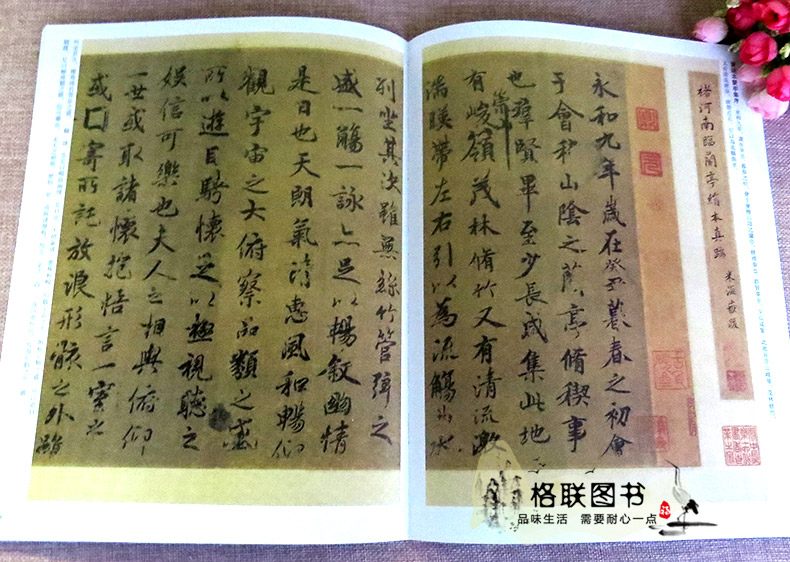 褚河南臨蘭亭絹本真跡 米海嶽跋
永和九年歲在癸丑暮春之初會
于會稽山陰之蘭亭脩禊事
也群賢畢至少長咸集此地
有峻嶺茂林脩竹又有清流激
湍暎帶左右引以為流觴曲水
列坐其次雖無絲竹管弦之
盛一觴一詠亦足以暢敘幽情
是日也天朗氣清惠風和暢仰
觀宇宙之大俯察品類之盛
所以遊目騁懷足以極視聽之
娛信可樂也夫人之相與俯仰
一世或取諸懷抱悟言一室之
或因寄所託放浪形骸之外雖
格联图书
品味生活 需要耐心一点